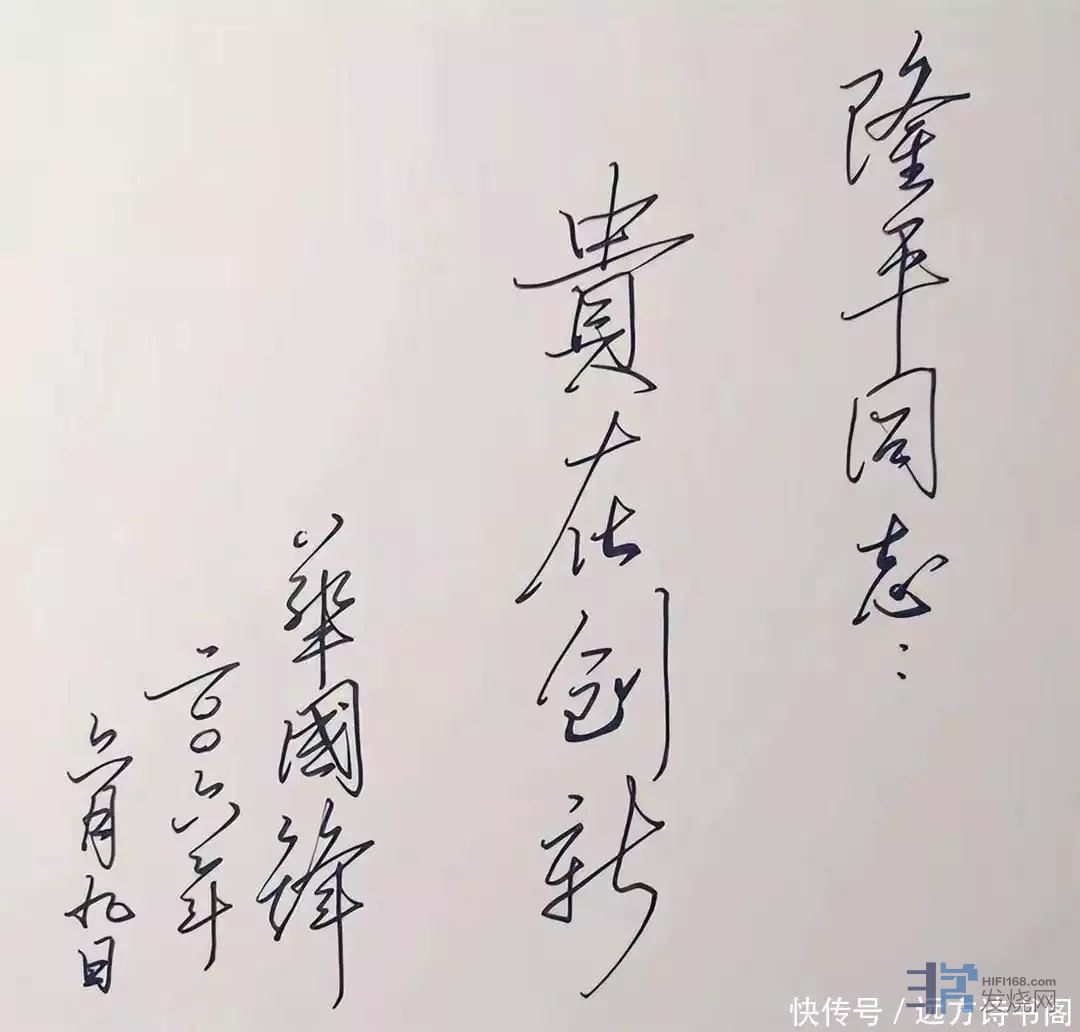 隆平同志：
貴在创新
華國鋒
二〇〇六年
六月九日
HIFI168.com
发烧网
快传号 / 远方诗书阁